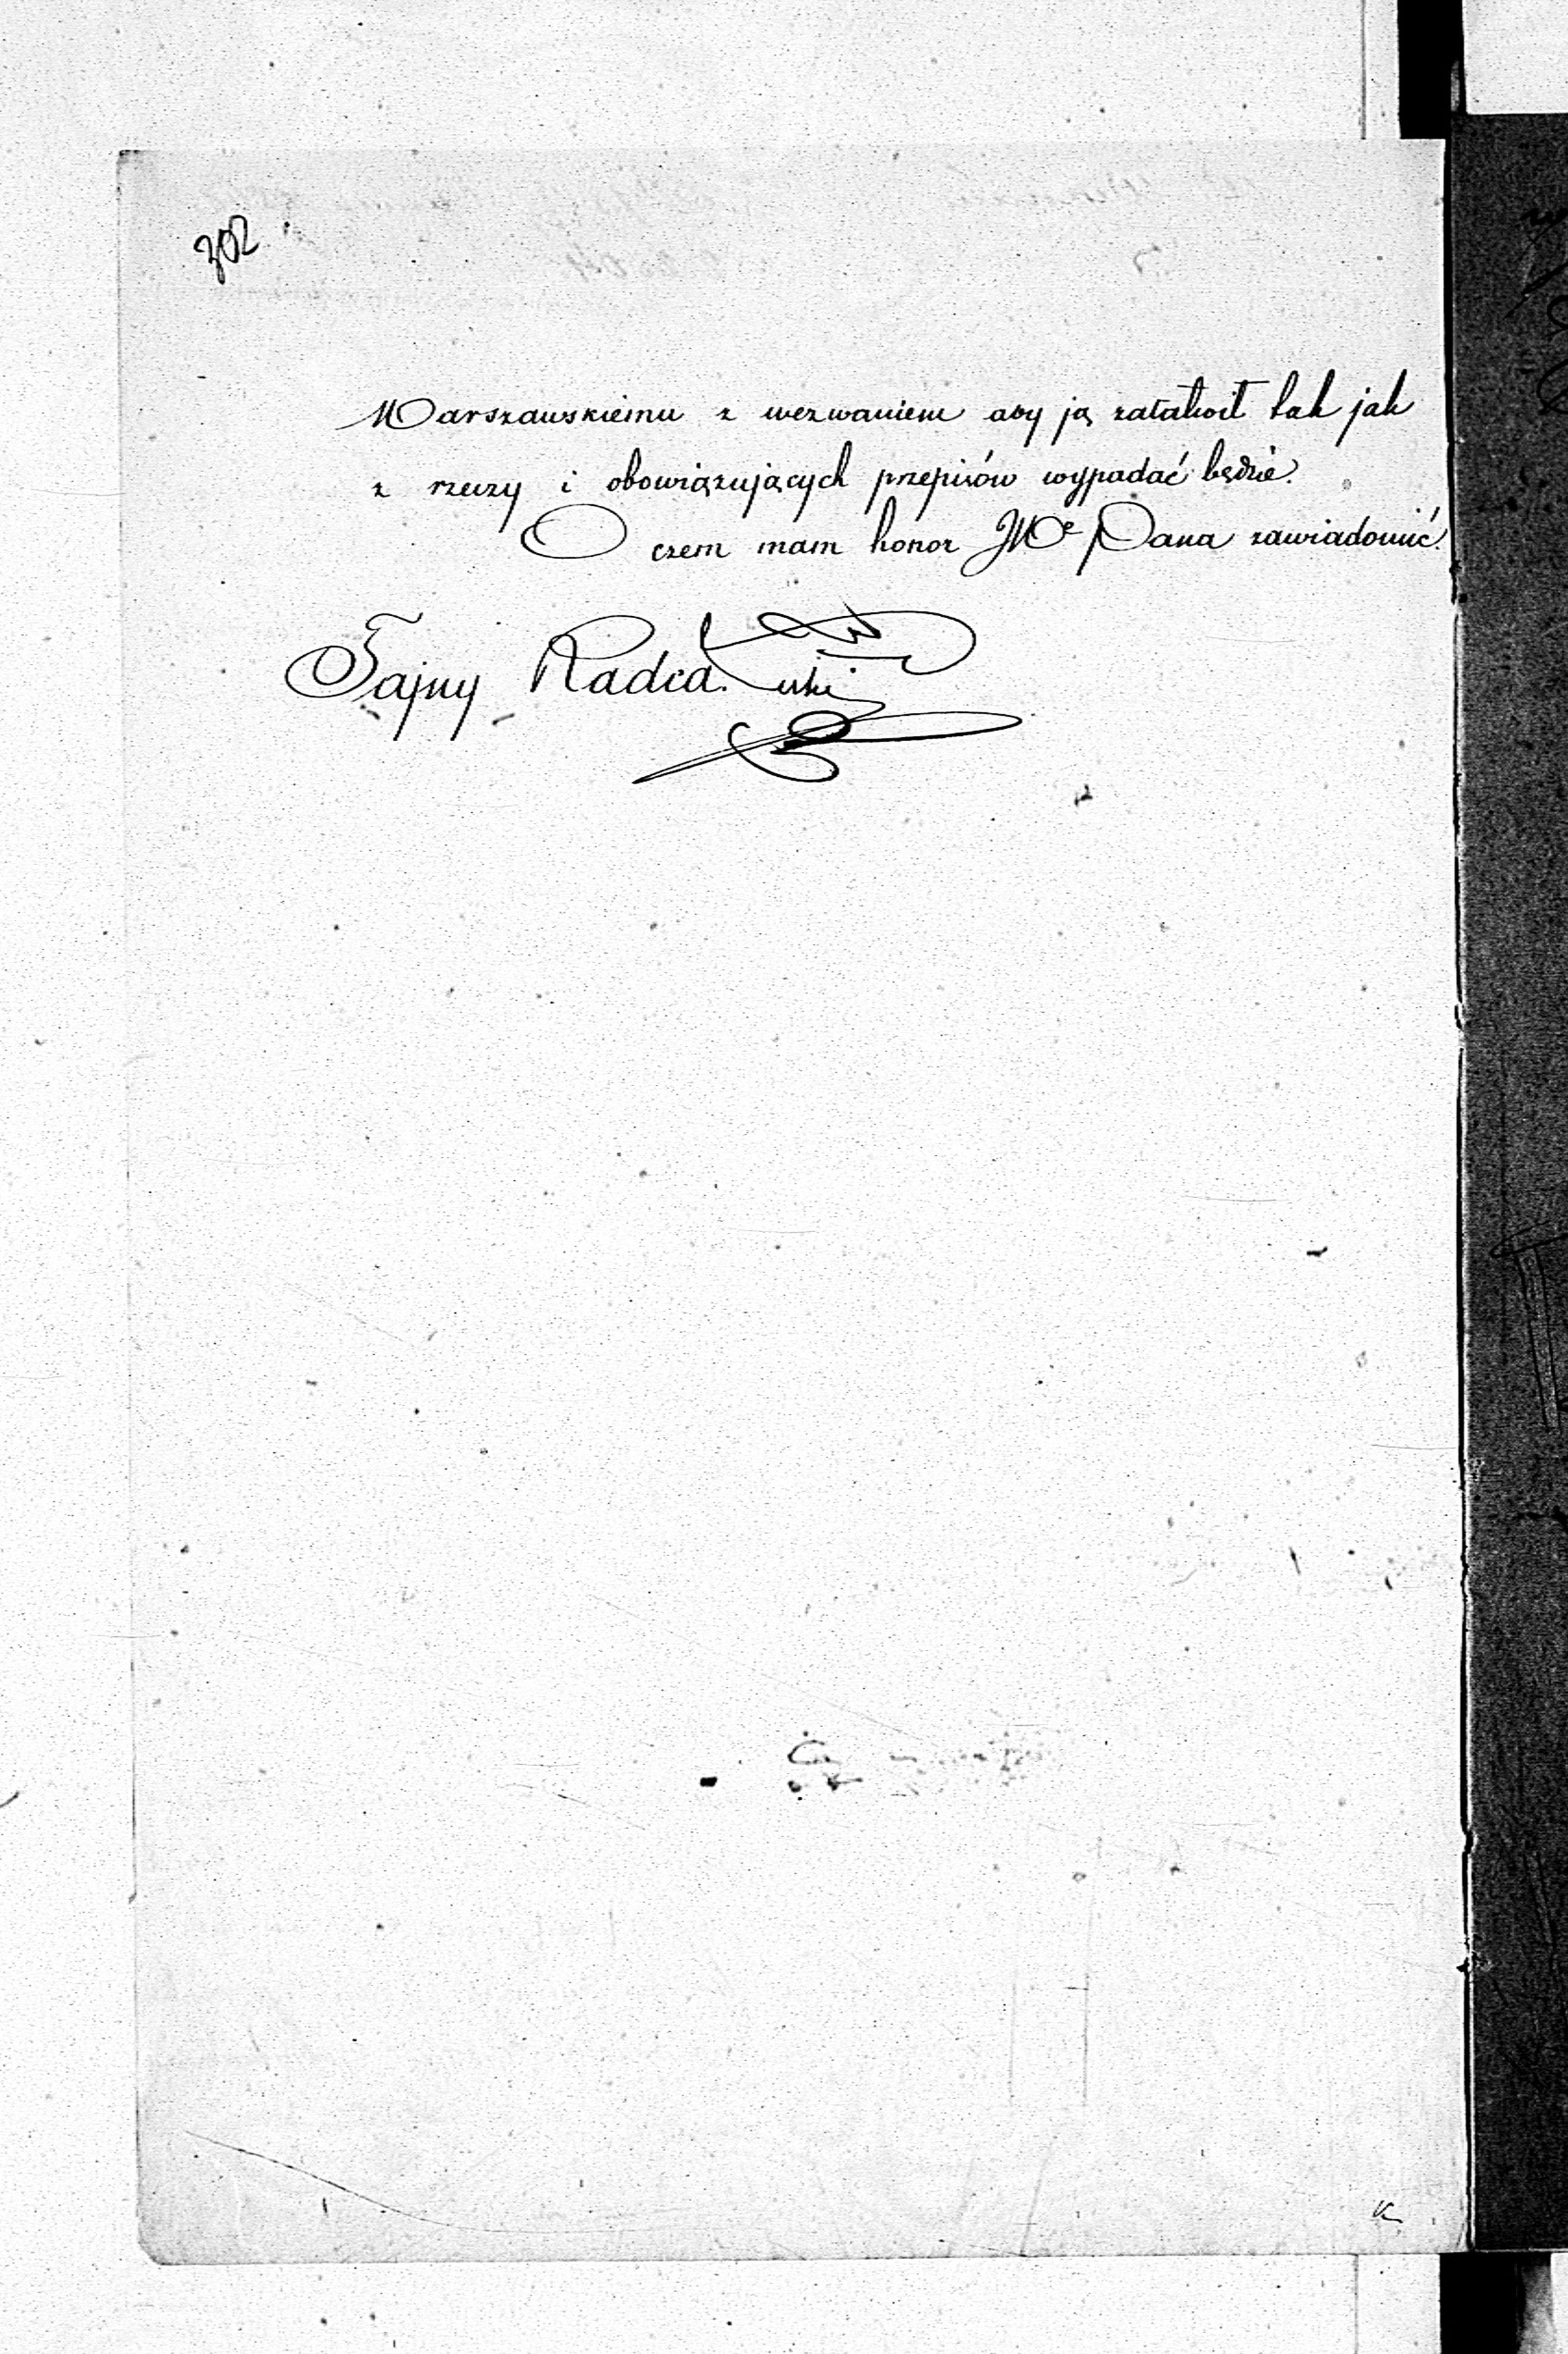 302
Warszawskiemu z wezwaniem aby ją załatwił tak jak
z rzeczy i obowiązujących przepisów wypadać będzie.
O czem mam honor JWe Pana zawiadomić.
Tajny Radca